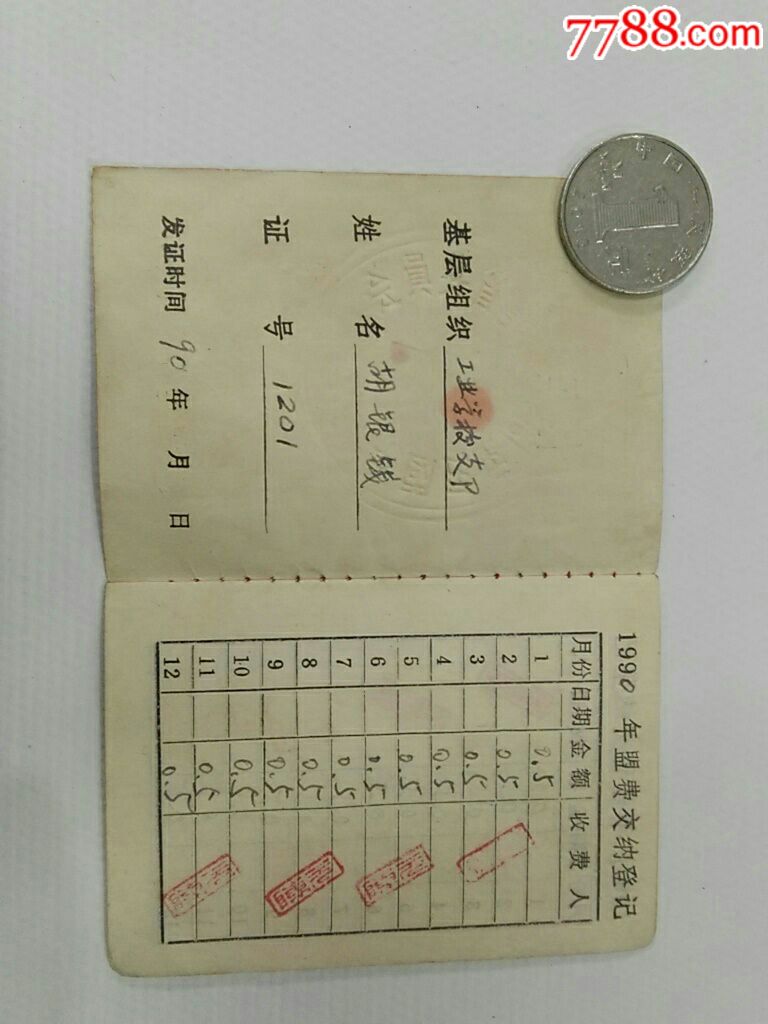 7788.com
基层组织 工业学校支卩
姓 名 胡银钱
证 号 1201
发证时间 90年 月 日
1990 年盟费交纳登记
月份 日期 金额 收费人
1 0.5
2 0.5
3 0.5
4 0.5
5 0.5
6 0.5
7 0.5
8 0.5
9 0.5
10 0.5
11 0.5
12 0.5